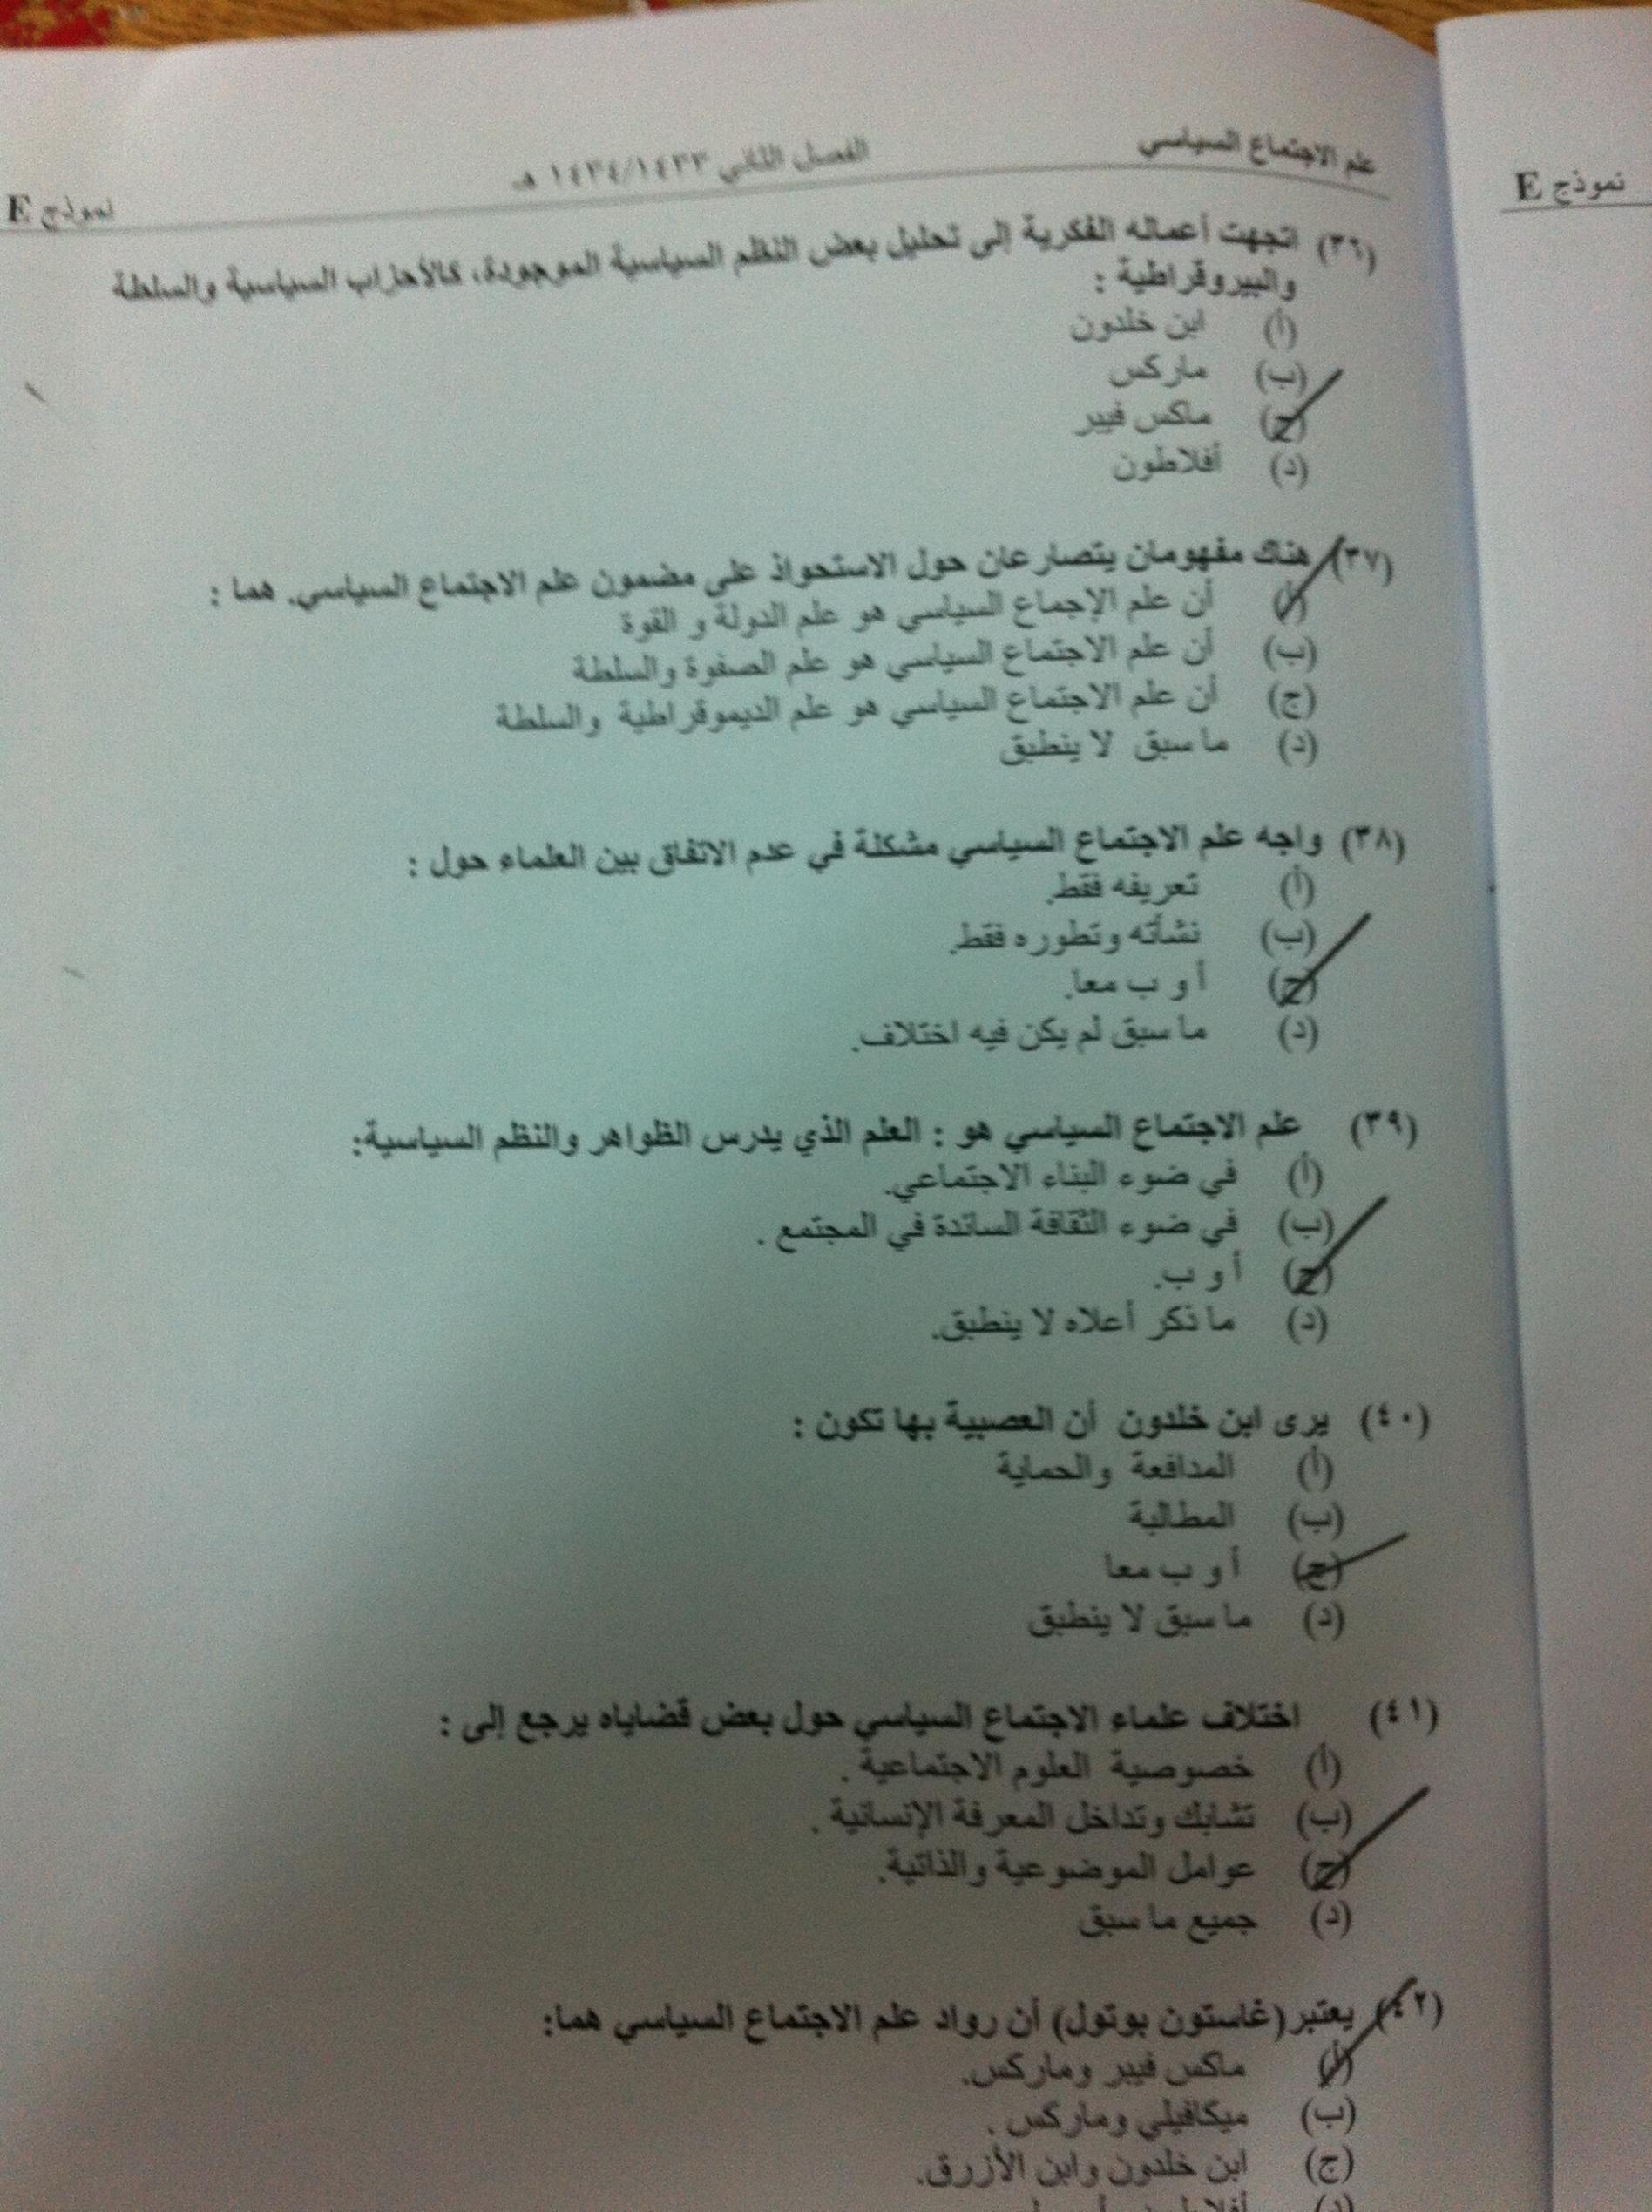 علم الاجتماع السياسي الفصل الثاني ١٤٣٤/١٤٣٣ هـ نموذج E
(٣٦) اتجهت أعماله الفكرية إلى تحليل بعض النظم السياسية الموجودة، كالأحزاب السياسية والسلطة
والبيروقراطية :
(أ) ابن خلدون
(ب) ماركس
(ج) ماكس فيبر
(د) أفلاطون
(٣٧) هناك مفهومان يتصارعان حول الاستحواذ على مضمون علم الاجتماع السياسي. هما :
(أ) أن علم الإجماع السياسي هو علم الدولة و القوة
(ب) أن علم الاجتماع السياسي هو علم الصفوة والسلطة
(ج) أن علم الاجتماع السياسي هو علم الديموقراطية والسلطة
(د) ما سبق لا ينطبق
(٣٨) واجه علم الاجتماع السياسي مشكلة في عدم الاتفاق بين العلماء حول :
(أ) تعريفه فقط.
(ب) نشأته وتطوره فقط.
(ج) أ و ب معا.
(د) ما سبق لم يكن فيه اختلاف.
(٣٩) علم الاجتماع السياسي هو : العلم الذي يدرس الظواهر والنظم السياسية:
(أ) في ضوء البناء الاجتماعي.
(ب) في ضوء الثقافة السائدة في المجتمع .
(ج) أ و ب.
(د) ما ذكر أعلاه لا ينطبق.
(٤٠) يرى ابن خلدون أن العصبية بها تكون :
(أ) المدافعة والحماية
(ب) المطالبة
(ج) أ و ب معا
(د) ما سبق لا ينطبق
(٤١) اختلاف علماء الاجتماع السياسي حول بعض قضاياه يرجع إلى :
(أ) خصوصية العلوم الاجتماعية .
(ب) تشابك وتداخل المعرفة الإنسانية .
(ج) عوامل الموضوعية والذاتية.
(د) جميع ما سبق
(٤٢) يعتبر (غاستون بوتول) أن رواد علم الاجتماع السياسي هما:
(أ) ماكس فيبر وماركس.
(ب) ميكافيلي وماركس .
(ج) ابن خلدون وابن الأزرق.
نموذج E